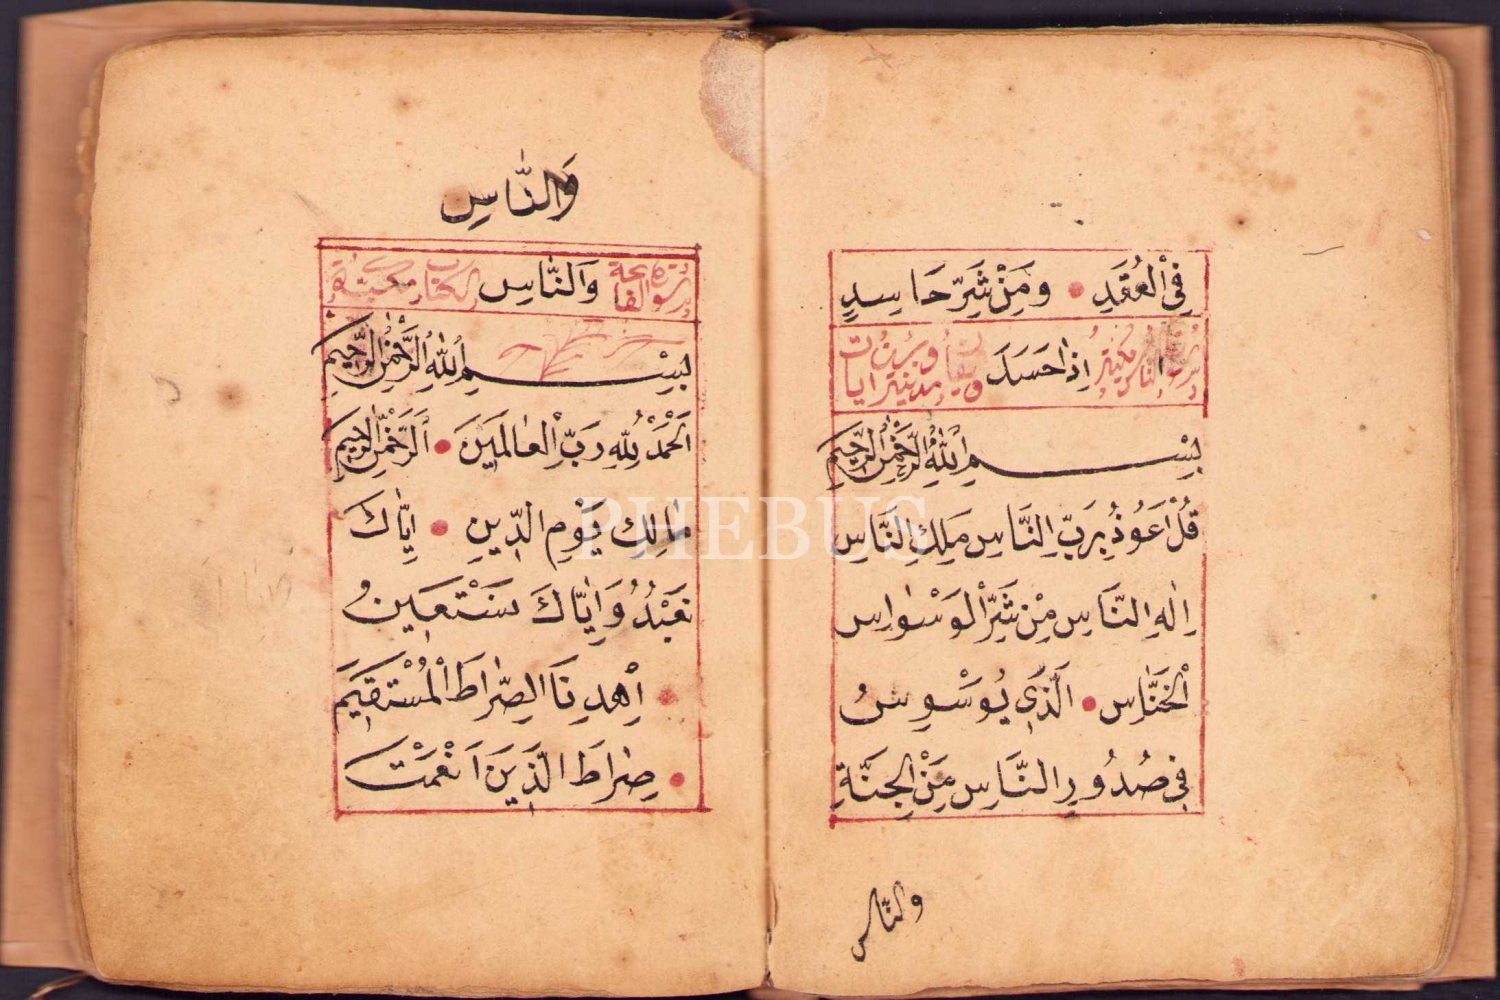 فِي الْعُقَدِ وَمِنْ شَرِّ حَاسِدٍ
سورة الناس مكية اِذَا حَسَدَ
بِسْمِ اللّٰهِ الرَّحْمٰنِ الرَّحِيمِ
قُلْ اَعُوذُ بِرَبِّ النَّاسِ مَلِكِ النَّاسِ
اِلٰهِ النَّاسِ مِنْ شَرِّ الْوَسْوَاسِ
الْخَنَّاسِ الَّذِي يُوَسْوِسُ
فِي صُدُورِ النَّاسِ مِنَ الْجِنَّةِ
والناس
وَالنَّاسِ
سورة الفاتحة وَالنَّاسِ الكتاب مكية
بِسْمِ اللّٰهِ الرَّحْمٰنِ الرَّحِيمِ
اَلْحَمْدُ لِلّٰهِ رَبِّ الْعَالَمِينَ اَلرَّحْمٰنِ الرَّحِيمِ
مَالِكِ يَوْمِ الدِّينِ اِيَّاكَ
نَعْبُدُ وَاِيَّاكَ نَسْتَعِينُ
اِهْدِنَا الصِّرَاطَ الْمُسْتَقِيمَ
صِرَاطَ الَّذِينَ اَنْعَمْتَ
PHEBUS